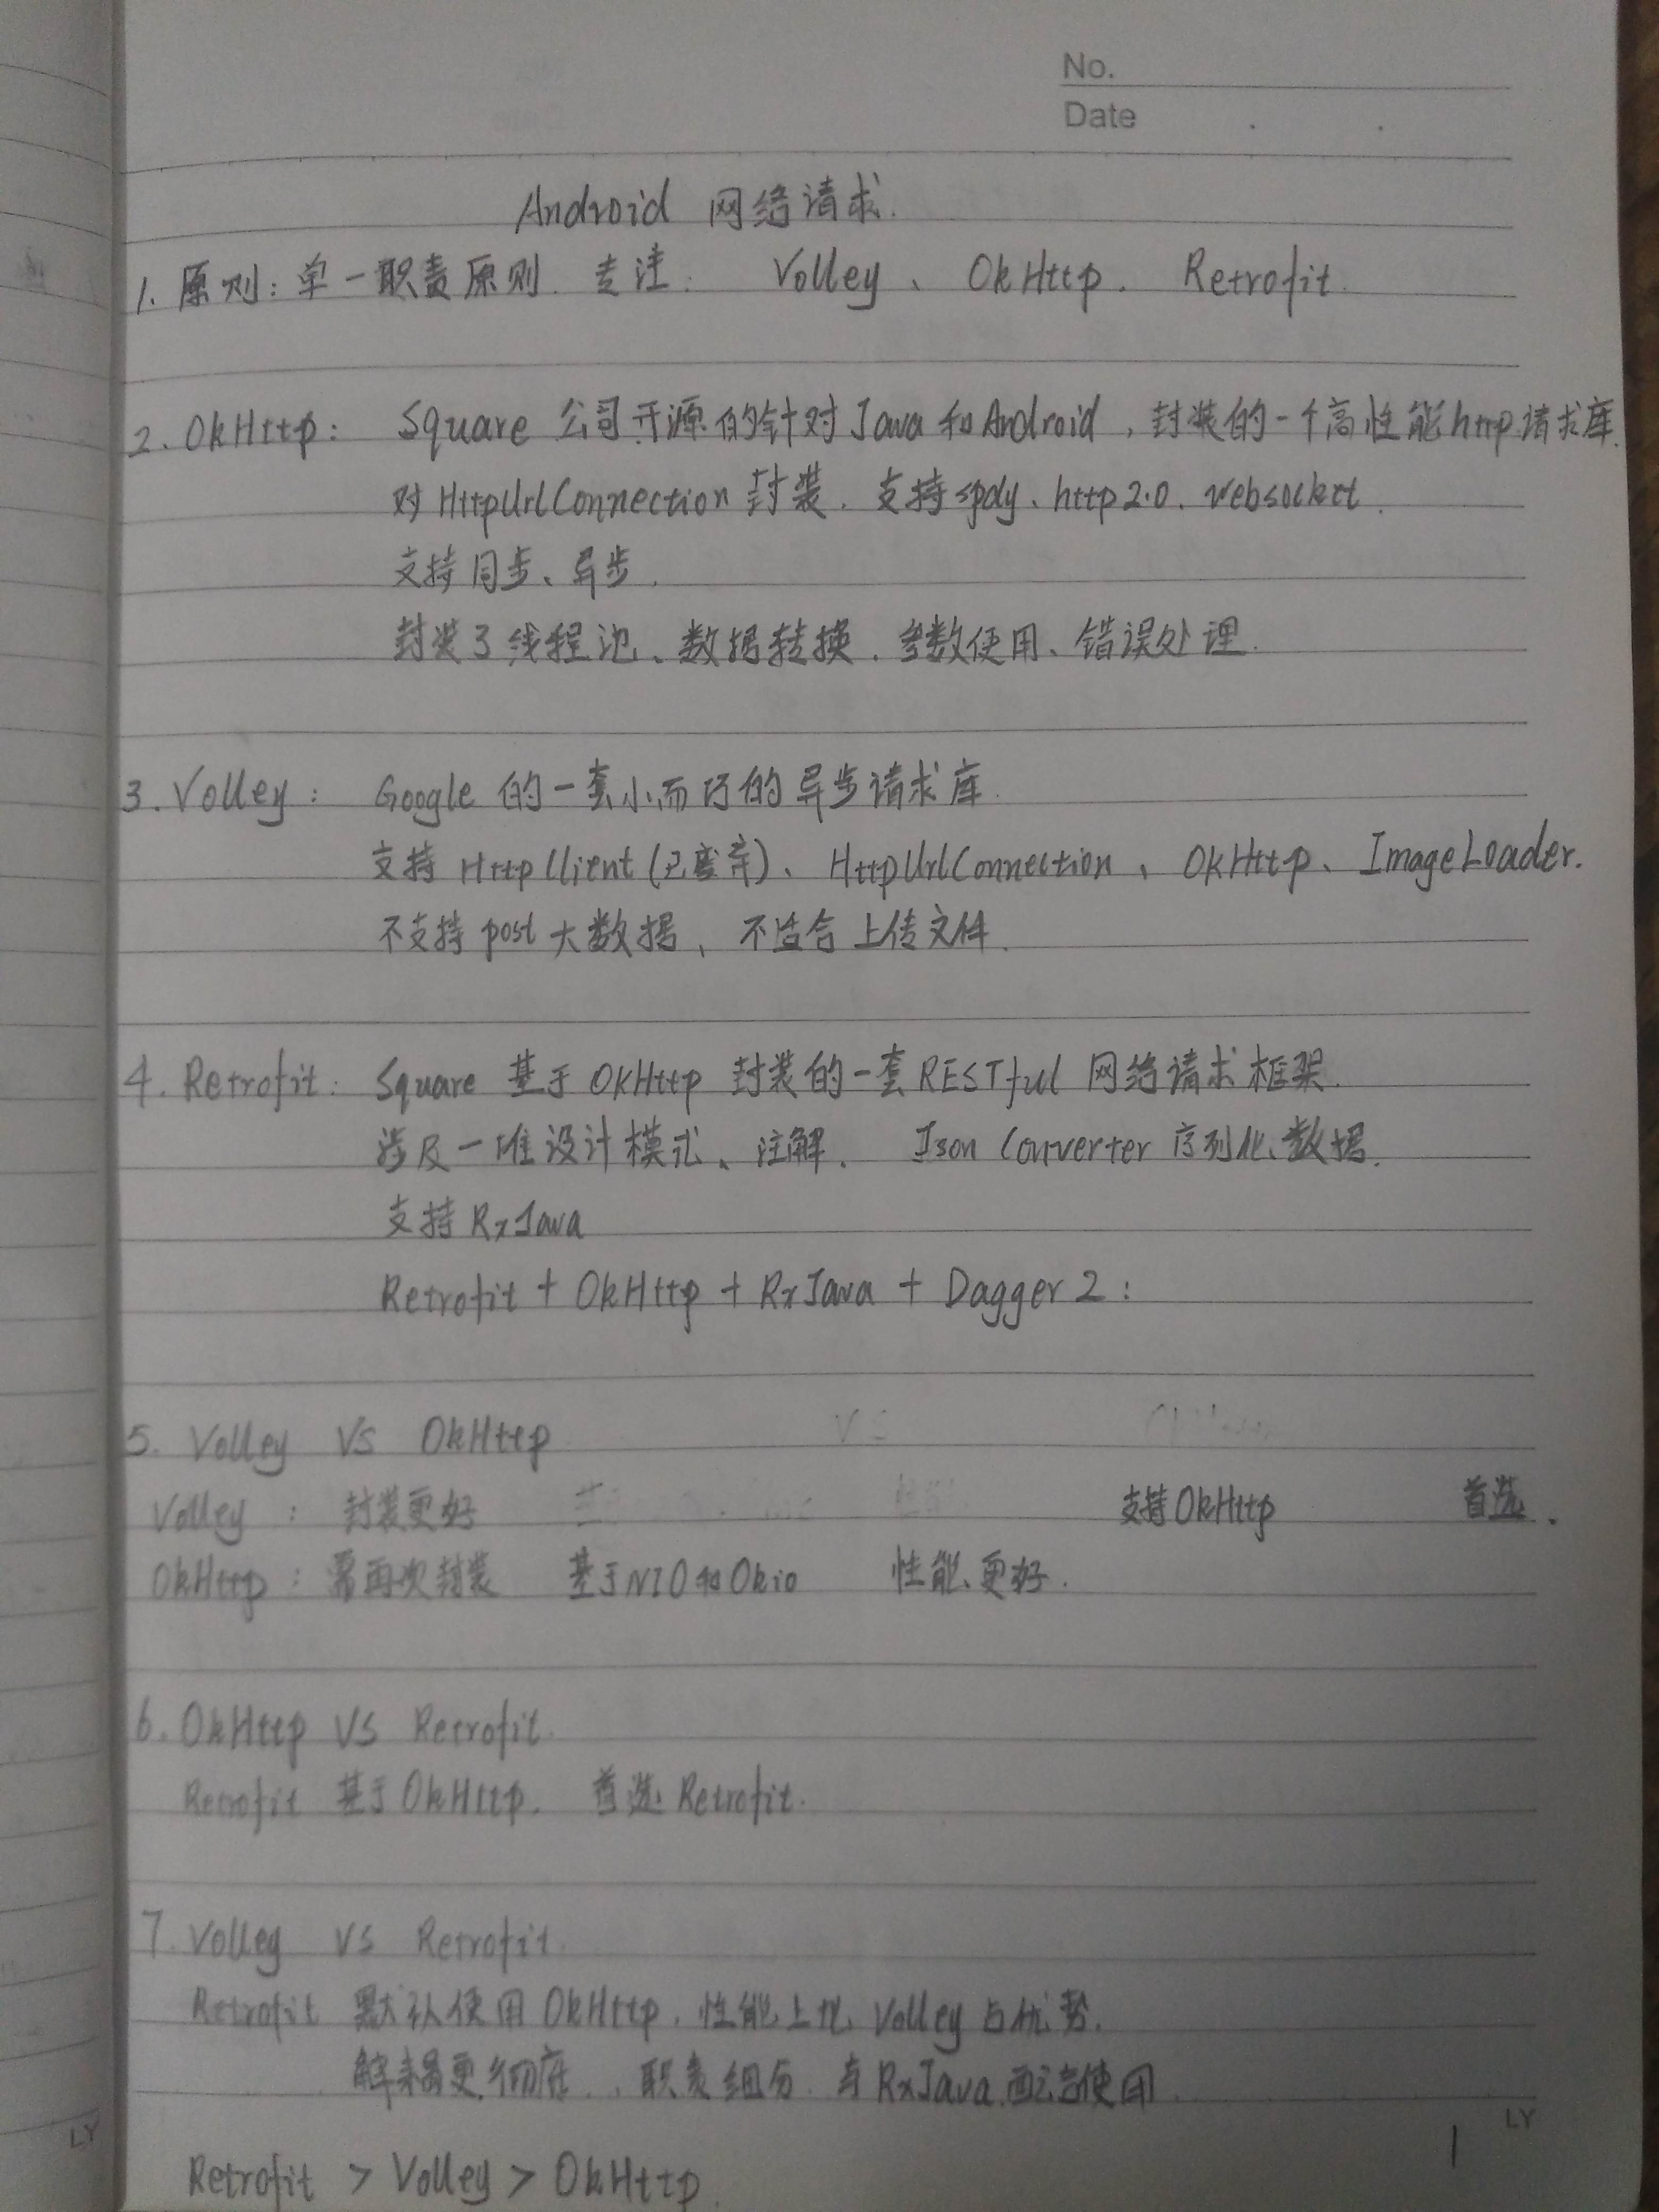 No.
Date
Android 网络请求.
1. 原则: 单一职责原则. 专注: Volley、OkHttp. Retrofit.
2. OkHttp: Square 公司开源的针对Java和Android, 封装的一个高性能http请求库.
对HttpUrlConnection封装. 支持spdy、http2.0. websocket.
支持同步、异步.
封装了线程池、数据转换. 参数使用、错误处理.
3. Volley: Google 的一套小而巧的异步请求库.
支持HttpClient(已废弃)、HttpUrlConnection、OkHttp、ImageLoader.
不支持post大数据、不适合上传文件.
4. Retrofit: Square 基于OkHttp 封装的一套RESTful 网络请求框架.
涉及一堆设计模式、注解. Json Converter 序列化数据.
支持RxJava
Retrofit + OkHttp + RxJava + Dagger 2:
5. Volley VS OkHttp
Volley : 封装更好 支持OkHttp 首选.
OkHttp : 需再次封装 基于NIO和Okio 性能更好.
6. OkHttp VS Retrofit.
Retrofit 基于OkHttp. 首选Retrofit.
7. Volley VS Retrofit.
Retrofit 默认使用OkHttp. 性能上比Volley占优势.
解耦更彻底. 职责细分. 与RxJava配合使用.
LY
LY
1
Retrofit > Volley > OkHttp.